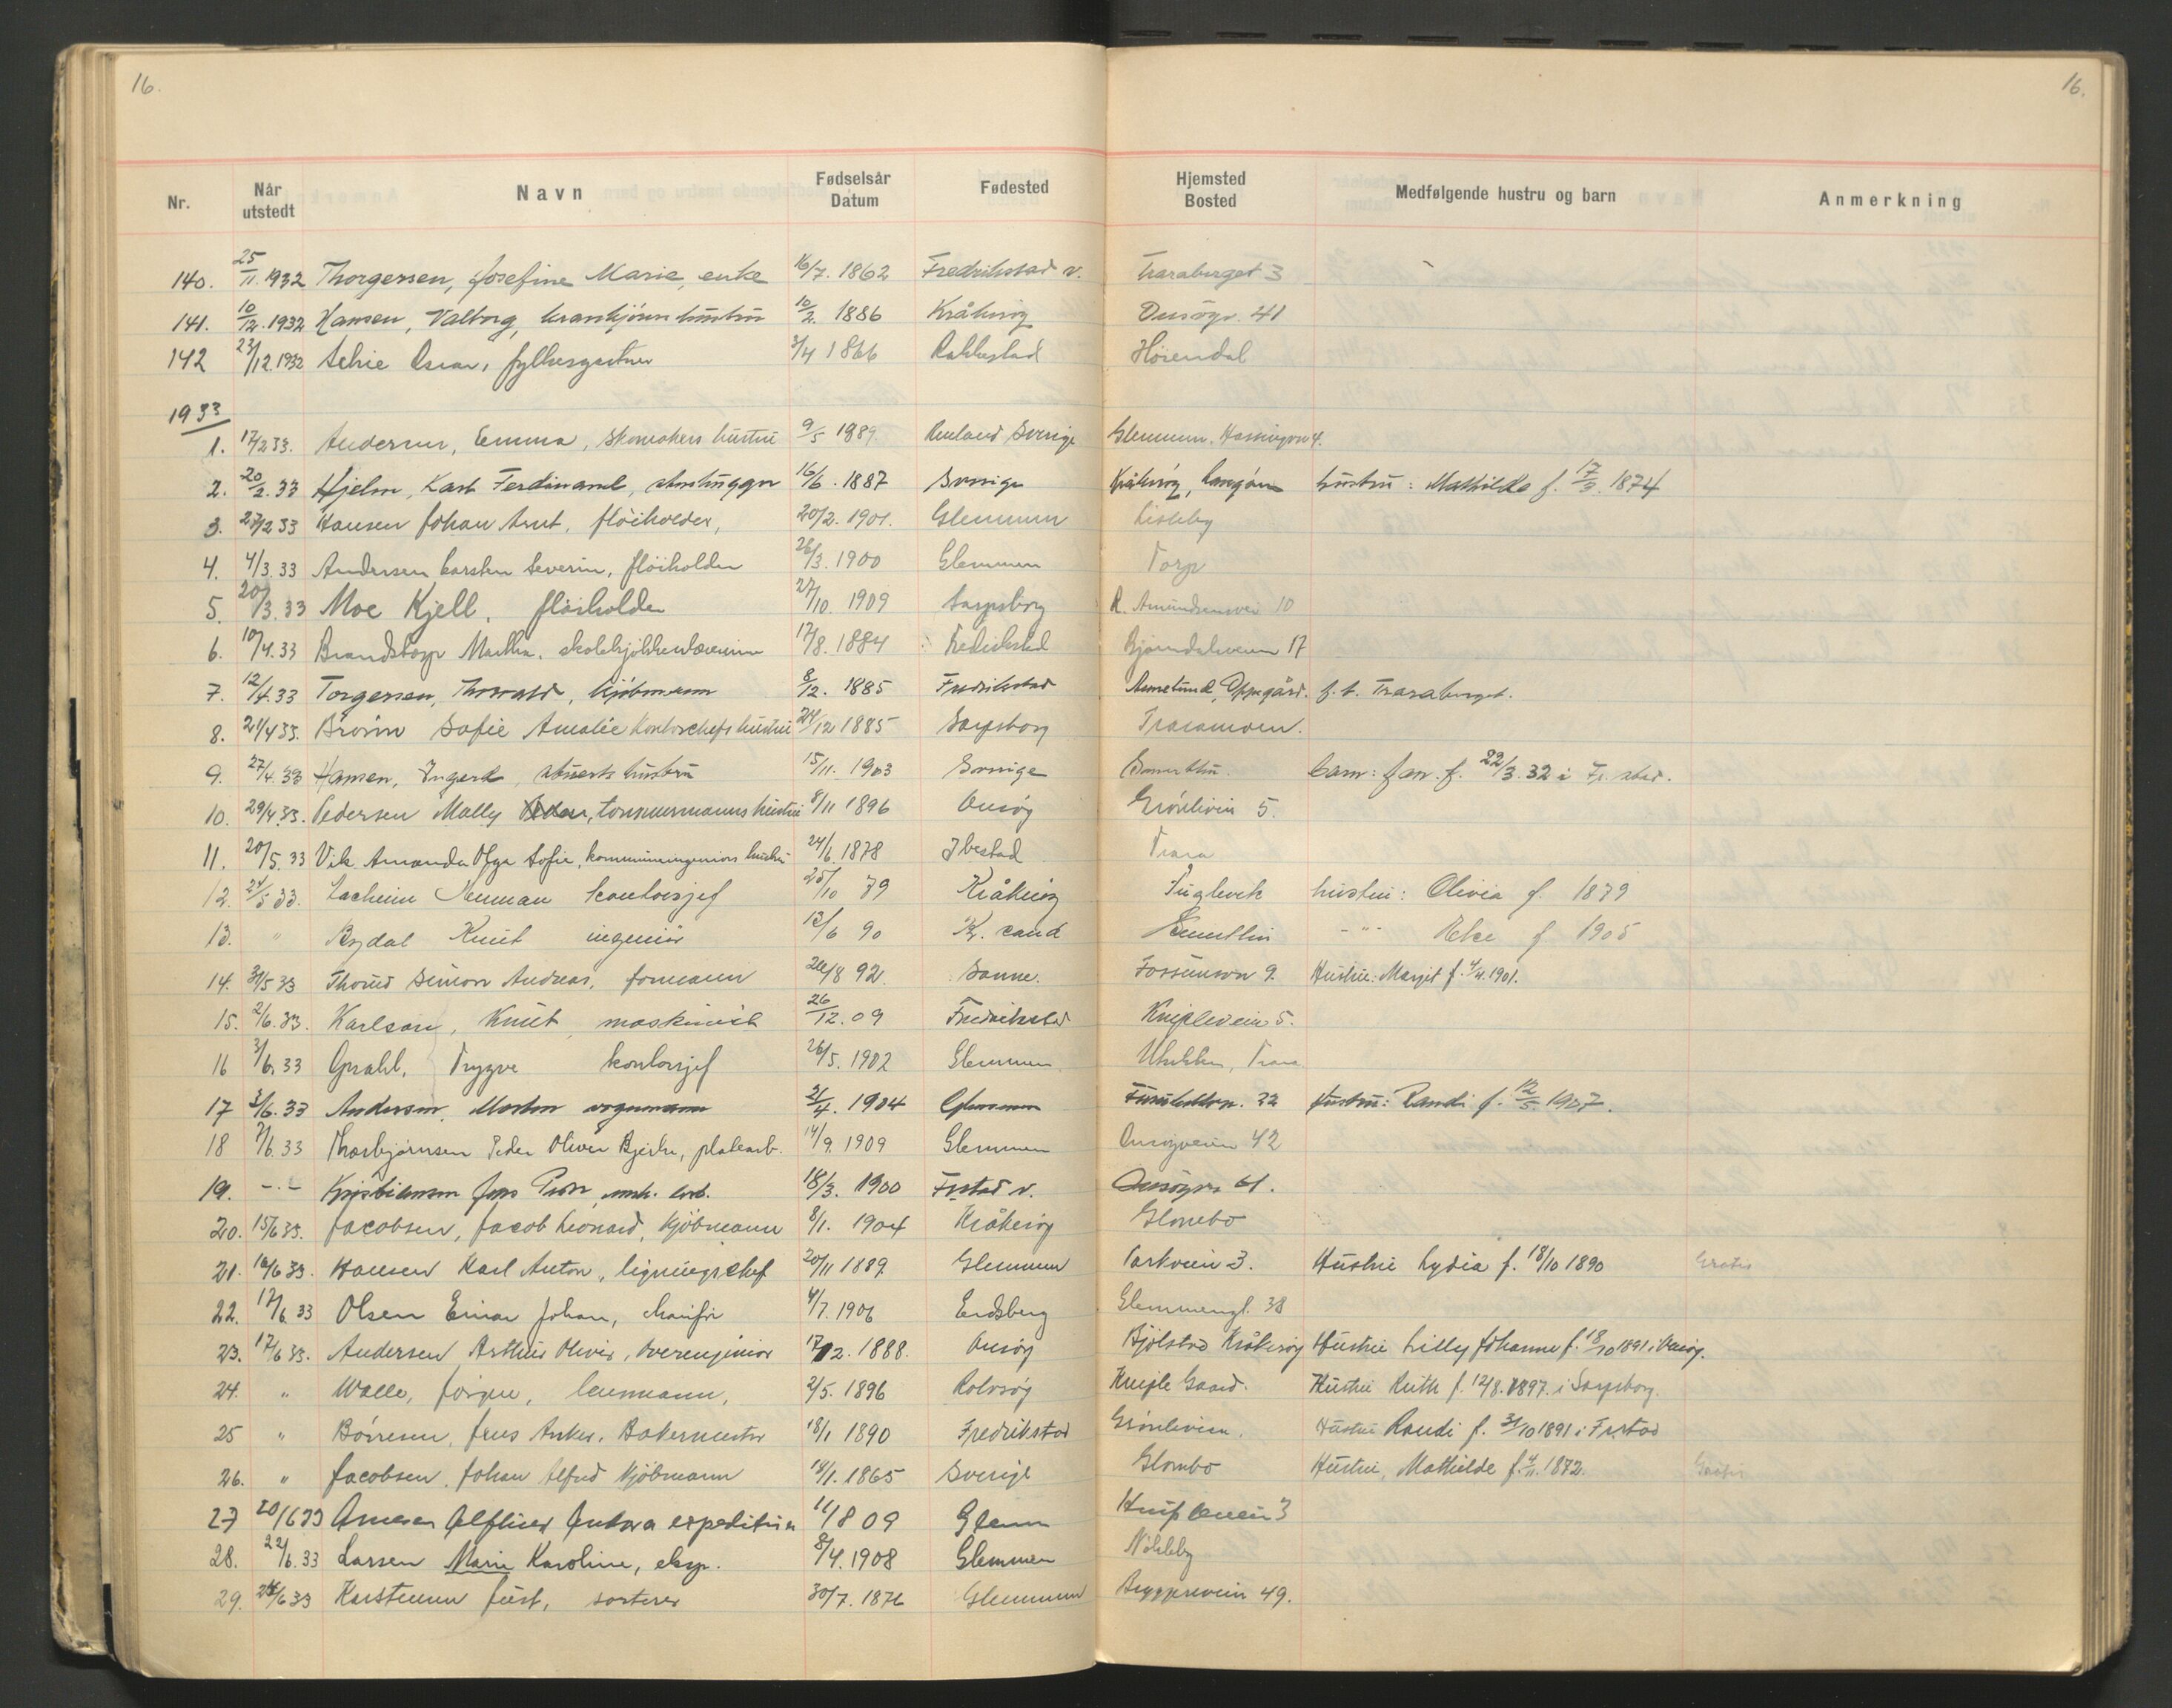 16.
16.
Nr. Når utstedt Navn Fødselsår Datum Fødested Hjemsted Bosted Medfølgende hustru og barn Anmerkning
140. 25/11.1932 Thorgersen, Josefine Marie, enke 16/7. 1862 Fredrikstad v. Traraberget 3
141. 10/12.1932 Hansen, Valborg, hustru 10/2. 1886 Kråkerøy Onsøyv. 41
142 23/12.1932 Oscar, fylkesgartner 3/4 1866 Rakkestad
1933
1. 17/2 33. Andersen, Emma, skomakers hustru 9/5 1889. Sverige Glemmen.
2. 20/2.33 Hjelm, Karl Ferdinand, stenhugger 16/6. 1887 Sverige Kråkerøy, hustru: Mathilde f. 1874
3. 27/2 33 Hansen Johan Arnt, fløiholder, 20/2. 1901. Glemmen Lisleby
4. 4/3.33 Andersen Carsten Severin, fløiholder 26/3. 1900 Glemmen Torp
5. 20/3.33 Moe Kjell, fløiholder 27/10. 1909 Sarpsborg R. Amundsensvei 10
6. 10/4.33 Brandstorp Martha. skolekjøkkenlærerinne 17/8. 1884 Fredrikstad Bjørndalsveien 17
7. 12/4.33 Torgersen, Thorvald, kjøbmann 8/12. 1885 Fredrikstad Oppegård. f.t. Traraberget.
8. 21/4 33. Sofie Amalie kontorchefs hustru 24/12 1885 Sarpsborg Traramoen.
9. 27/4.33 Hansen, Ingerd, stuerts hustru 15/11. 1903 Sverige barn: Jan. f. 22/3.32 i Fr.stad.
10. 29/4.33. Pedersen Molly tømmermanns hustru 8/11 1896 Onsøy Grønliveien 5.
11. 20/5.33 Vik Amanda Olga Sofie, kommuneingeniørs hustru 24/6.1878 Ibestad Trara
12. 24/5 33. Herman kontorsjef 25/10 79 Kråkerøy Fuglevik hustru: Olivia f. 1879
13. " Rydal Knut ingeniør 13/6 90 Kr. sand - " - Else f 1905
14. 31/5 33 Simon Andreas, formann 26/8 92. Sanne. Fossumsvn 9. Hustru: Margit f. 4/4.1901.
15. 2/6.33. Karlson, Knut, maskinist 26/12.09 Fredrikstad Knipleveien 5.
16 3/6.33 Trygve kontorsjef 26/5. 1902 Glemmen Trara.
17 3/6.33 Andersen, Morten vognmann 2/4. 1904 Glemmen 22 Hustru: Randi f. 12/5 1907.
18 7/6.33 Thorbjørnsen Peder Oliver Bjerke, platearb. 14/9. 1909 Glemmen Onsøyveien 42
19. -"- Kristiansen Jens mek. arb. 18/3. 1900 Fr.stad v. Onsøyvn 61.
20. 15/6 33. Jacobsen, Jacob Leonard, kjøbmann 8/1. 1904 Kråkerøy Glombo
21. 16/6 33. Hansen Karl Anton, ligningschef 20/11 1889. Glemmen Parkveien 3. Hustru Lydia f. 18/10 1890 Gratis
22. 17/6.33 Olsen Einar Johan, chaufør 4/7. 1906 Eidsberg Glemmengt. 38
23. 17/6 33. Andersen Arthur Oliver, overingeniør 17/12. 1888. Onsøy Bjølstad Kråkerøy Hustru Lilly Johanne f. 18/10 1891 i Onsøy.
24. " Walle, Jørgen, lensmann, 2/5. 1896 Rolvsøy Kniple Gaard. Hustru Ruth f. 12/8. 1897. i Sarpsborg.
25 " Børresen, Jens Anker. Bakermester 18/1 1890 Fredrikstad Grønliveien. Hustru Randi f. 31/10 1891 i Fr.stad
26. " Jacobsen, Johan Alfred Kjøbmann 14/1. 1865 Sverige Glombo Hustru, Mathilde f. 4/11. 1872. Gratis
27 20/6 33 Arnesen Antora expeditrise 11/8 09 Glemm Knipleveien 3
28. 22/6.33 Larsen Marie Karoline, eksp. 8/4. 1908 Glemmen Nøkleby
29. 24/6 33 Karstensen Just, sorterer 30/7. 1876 Glemmen Bryggeriveien 49.